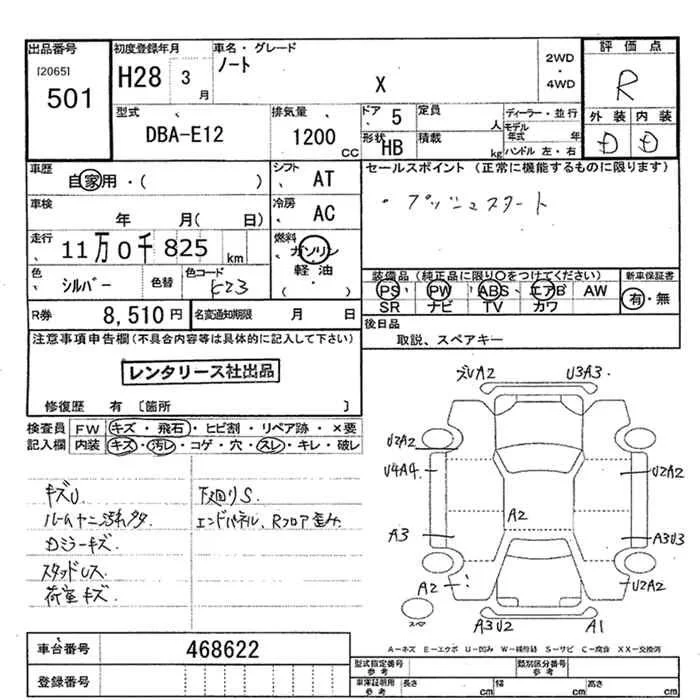 出品番号 初度登録年月 車名・グレード 評価点
[2065] ノート 2WD
501 H28 3月 X 4WD R
型式 排気量 ドア 5 定員 人 ディーラー・並行 外装 内装
DBA-E12 1200 CC 形状 HB 積載 kg モデル年式 年 ハンドル 左・右 D D
車歴 自家用・( ) シフト AT セールスポイント (正常に機能するものに限ります)
車検 年 月(日) 冷房 AC ・プッシュスタート
走行 11万0千825km 燃料 ガソリン
軽油
( )
色 シルバー 色替 色コード K23 装備品(純正品に限り○をつけてください) 新車保証書
PS PW ABS エアB AW 有・無
SR ナビ TV カワ
R券 8,510円 名変通知期限 月 日 後日品
取説、スペアキー
注意事項申告欄(不具合内容等は具体的に記入して下さい)
レンタリース社出品
修復歴 有〔箇所 〕
検査員 FW キズ・飛石・ヒビ割・リペア跡・×要
記入欄 内装 キズ・汚レ・コゲ・穴・スレ・キレ・破レ
キズU 下廻りS
エンドパネル、Rフロア歪み
Dミラーキズ
荷室キズ
UA2 U3A3
U2A2
U4A4 U2A2
A2
A3 A3U3
A2 U2A2
スペア
A3U2 A1
A-キズ E-エクボ U-凹み W-補修跡 S-サビ C-腐食 XX-交換済
車台番号 468622
型式指定番号 参考 類別区分番号 参考
登録番号 車庫証明用 参考 長さ cm 幅 cm 高さ cm